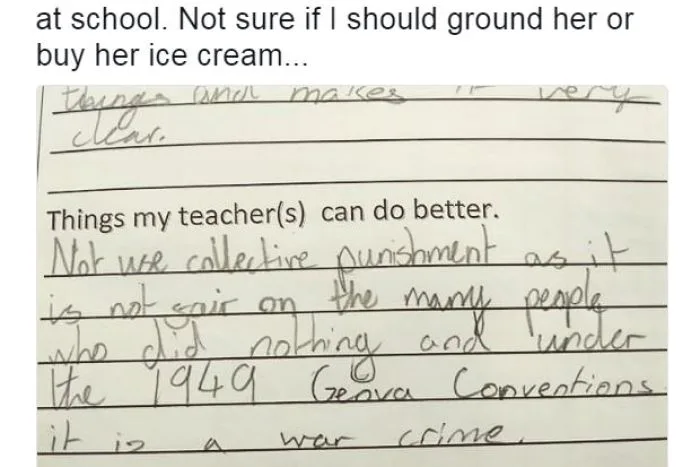 at school. Not sure if I should ground her or
buy her ice cream...
things and makes it very
clear.
Things my teacher(s) can do better.
Not use collective punishment as it
is not fair on the many people
who did nothing and under
the 1949 Geneva Conventions
it is a war crime.